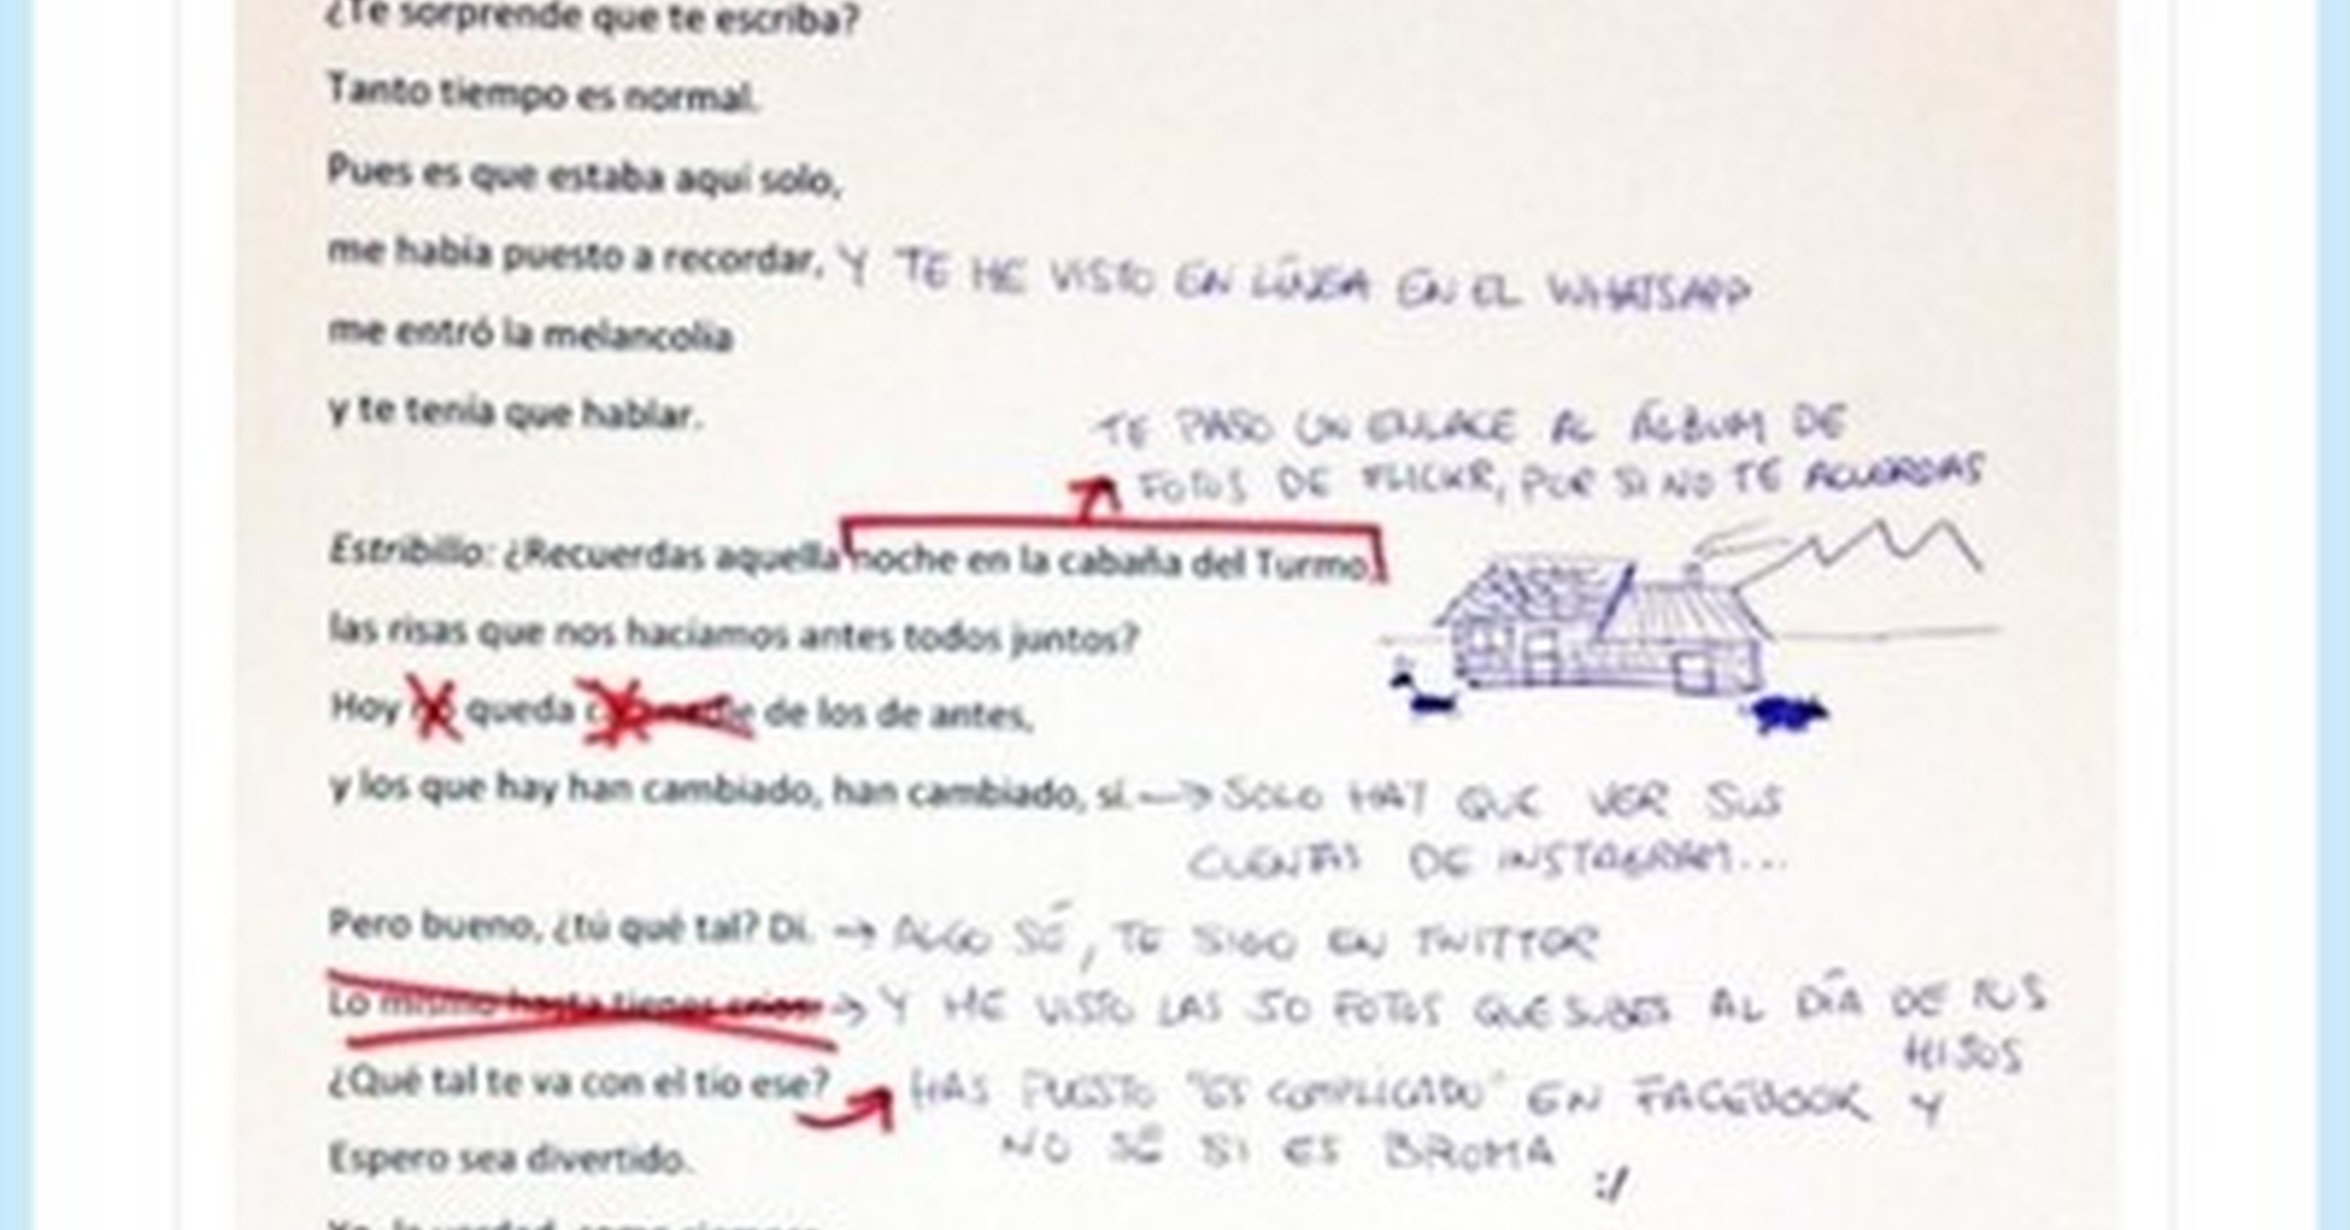 ¿Te sorprende que te escriba?
Tanto tiempo es normal.
Pues es que estaba aquí solo,
me había puesto a recordar, Y TE HE VISTO EN LÍNEA EN EL WHATSAPP
me entró la melancolía
y te tenía que hablar.
TE PASO UN ENLACE AL ÁLBUM DE
FOTOS DE FLICKR, POR SI NO TE ACUERDAS
Estribillo: ¿Recuerdas aquella noche en la cabaña del Turmo,
las risas que nos hacíamos antes todos juntos?
Hoy queda de los de antes,
y los que hay han cambiado, han cambiado, sí. → SOLO HAY QUE VER SUS
CUENTAS DE INSTAGRAM...
Pero bueno, ¿tú qué tal? Di. → ALGO SÉ, TE SIGO EN TWITTER
Lo mismo hasta tienes críos. → Y HE VISTO LAS 50 FOTOS QUE SUBES AL DÍA DE TUS
HIJOS
¿Qué tal te va con el tío ese? HAS PUESTO "ES COMPLICADO" EN FACEBOOK Y
NO SÉ SI ES BROMA :/
Espero sea divertido.
Yo, la verdad, como siempre